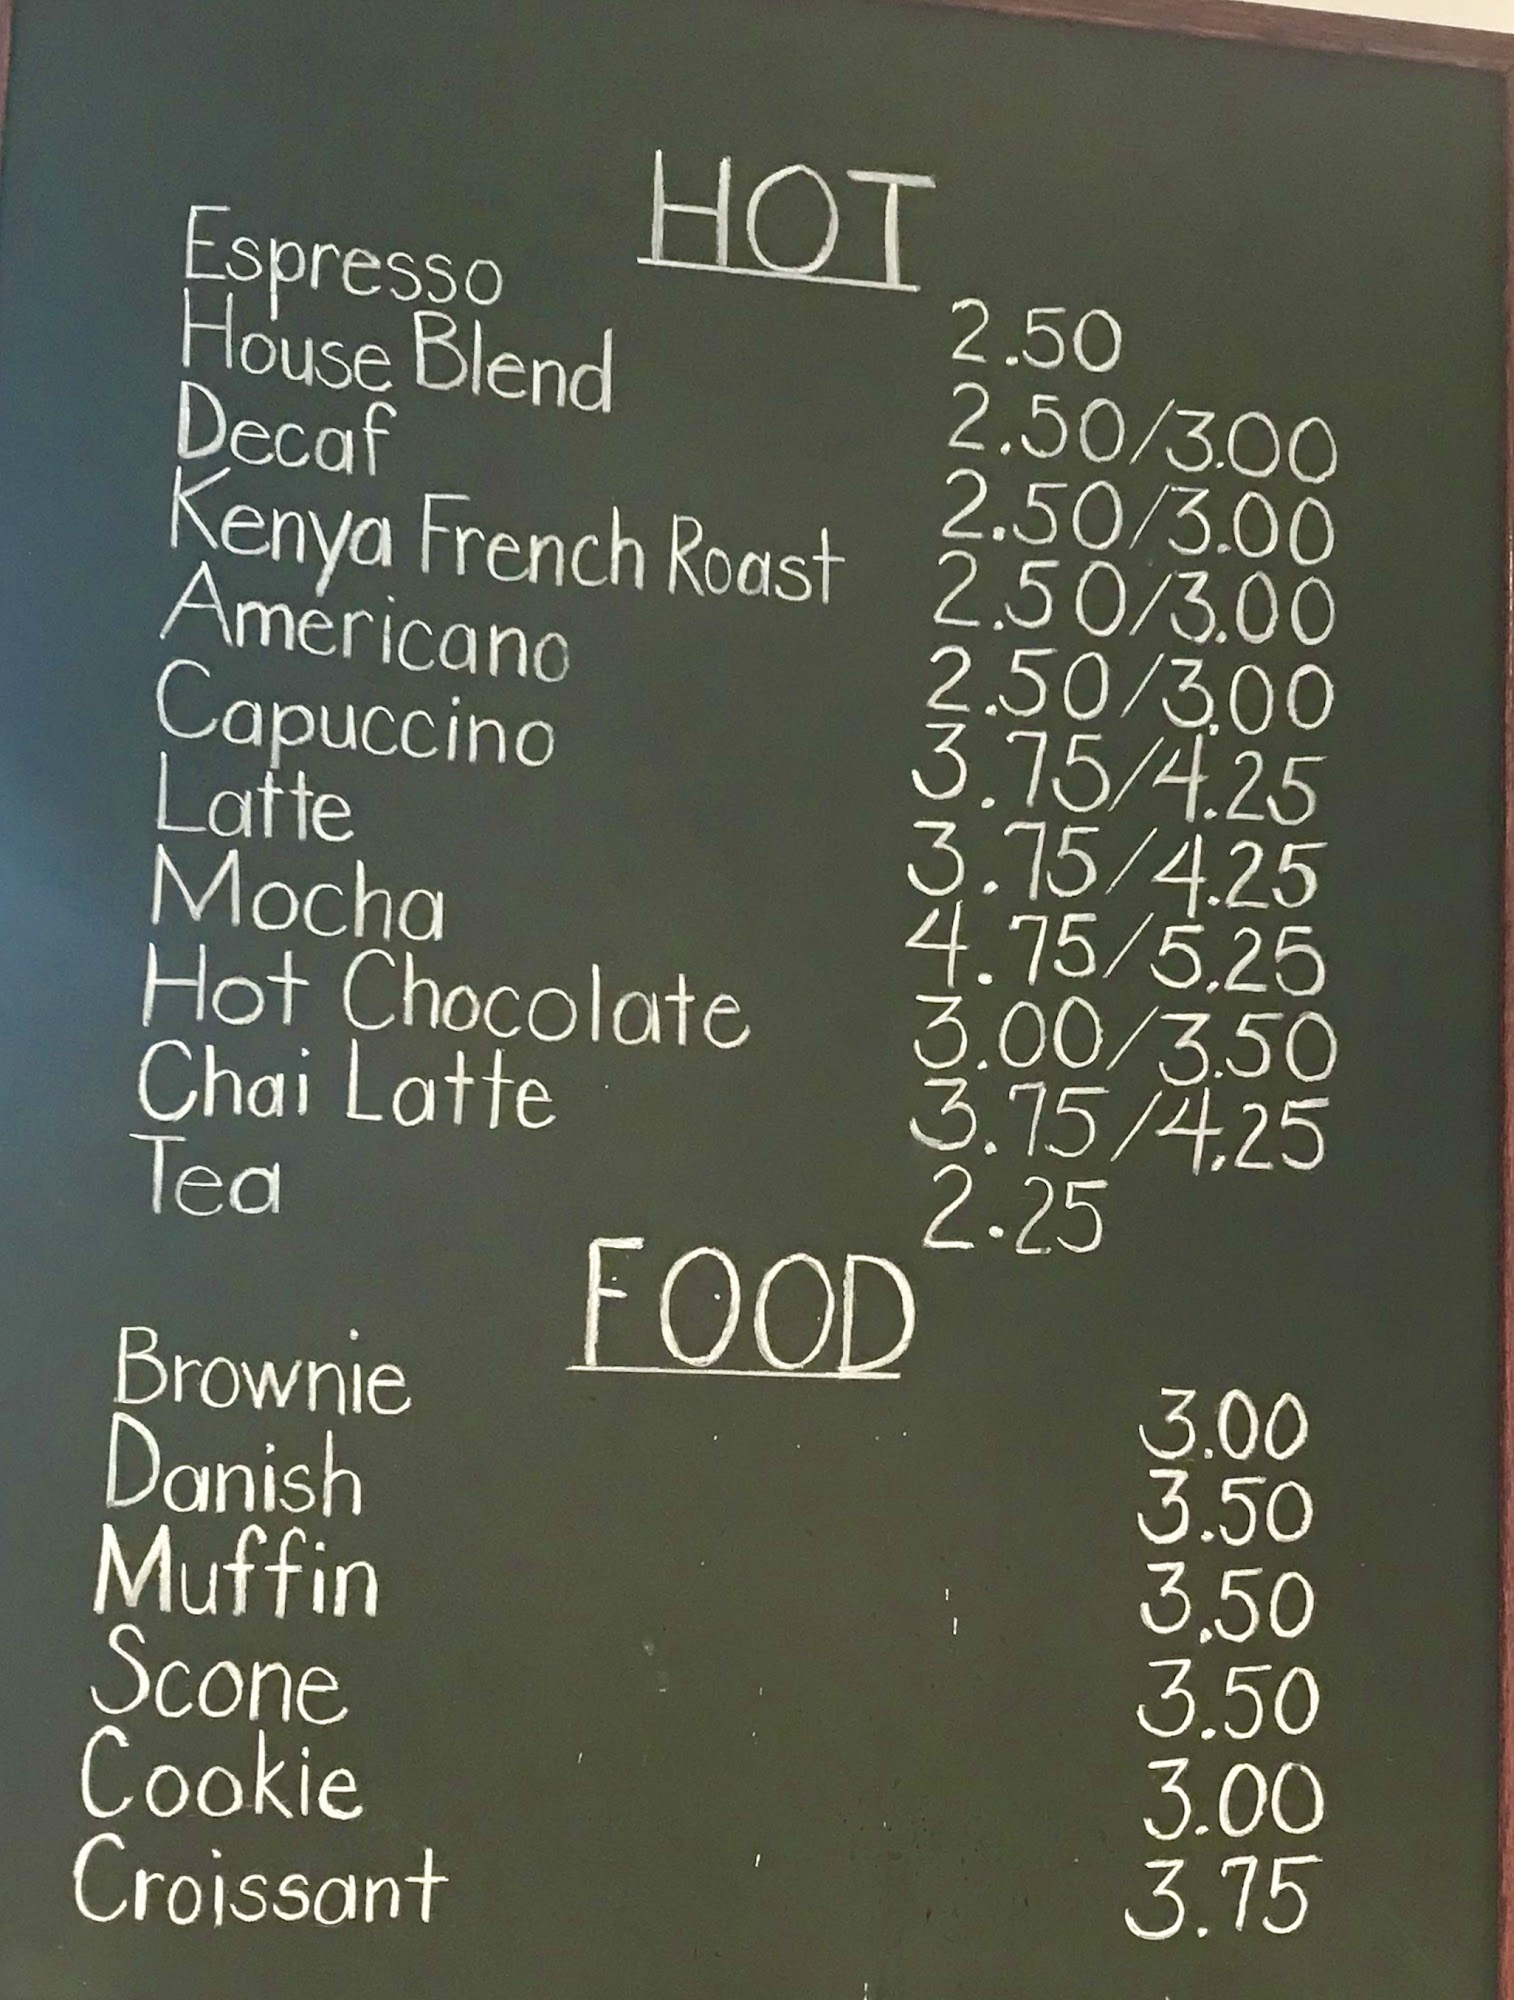 HOT
Espresso 2.50
House Blend 2.50/3.00
Decaf 2.50/3.00
Kenya French Roast 2.50/3.00
Americano 2.50/3.00
Capuccino 3.75/4.25
Latte 3.75/4.25
Mocha 4.75/5.25
Hot Chocolate 3.00/3.50
Chai Latte 3.75/4.25
Tea 2.25
FOOD
Brownie 3.00
Danish 3.50
Muffin 3.50
Scone 3.50
Cookie 3.00
Croissant 3.75